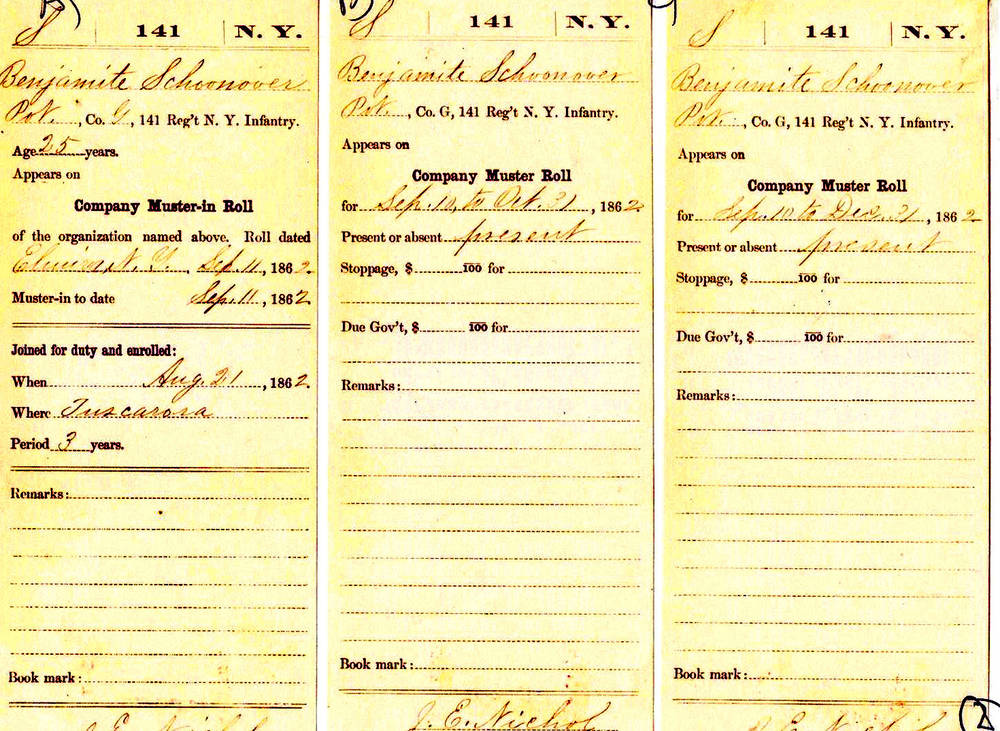 S | 141 | N. Y.
Benjamite Schoonover
Pvt. , Co. G , 141 Reg't N. Y. Infantry.
Age 25 years.
Appears on
Company Muster-in Roll
of the organization named above. Roll dated
Elmira N. Y. , Sep. 11 , 1862.
Muster-in to date Sep. 11 , 1862
Joined for duty and enrolled:
When Aug. 21 , 1862.
Where Tuscarora
Period 3 years.
Remarks:
Book mark:
J. E. Nichol
S | 141 | N. Y.
Benjamite Schoonover
Pvt. , Co. G, 141 Reg't N. Y. Infantry.
Appears on
Company Muster Roll
for Sep. 10, to Oct. 31 , 1862
Present or absent present
Stoppage, $ 100 for
Due Gov't, $ 100 for
Remarks:
Book mark:
J. E. Nichol
S | 141 | N. Y.
Benjamite Schoonover
Pvt. , Co. G, 141 Reg't N. Y. Infantry.
Appears on
Company Muster Roll
for Sep. 10 to Dec. 31 , 1862
Present or absent present
Stoppage, $ 100 for
Due Gov't, $ 100 for
Remarks:
Book mark:
E. Nichol
2